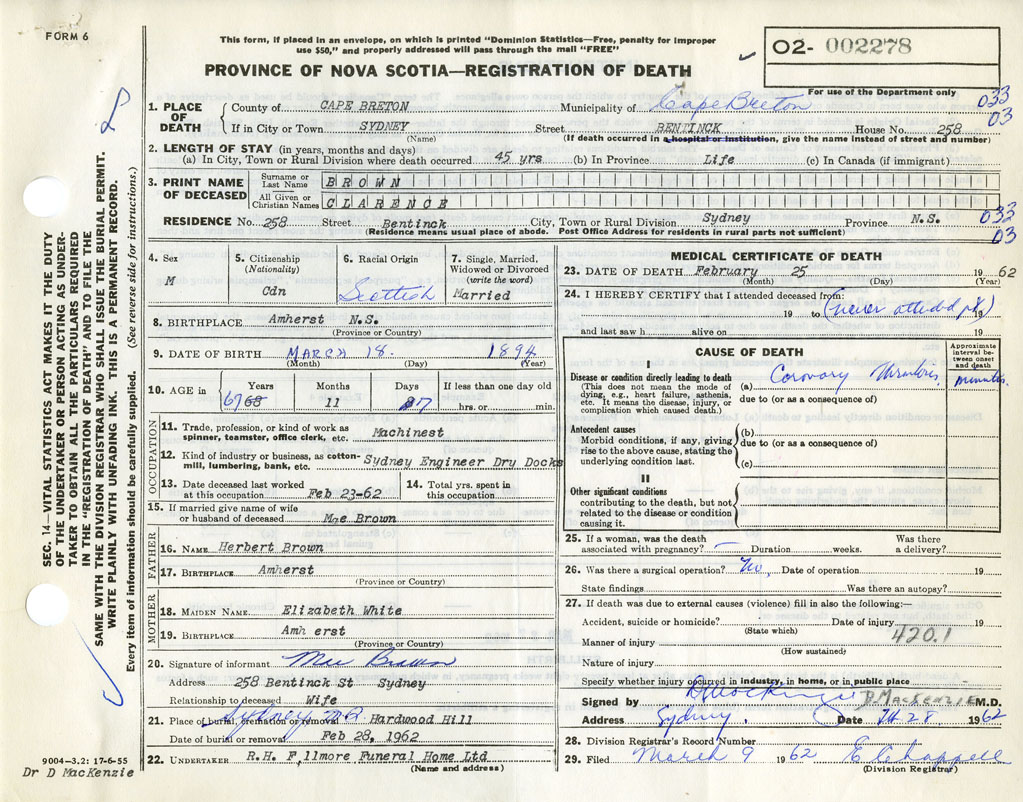 FORM 6
This form, if placed in an envelope, on which is printed "Dominion Statistics—Free, penalty for improper
use $50," and properly addressed will pass through the mail "FREE"
O2- 002278
PROVINCE OF NOVA SCOTIA—REGISTRATION OF DEATH
For use of the Department only
SEC. 14—VITAL STATISTICS ACT MAKES IT THE DUTY
OF THE UNDERTAKER OR PERSON ACTING AS UNDER-
TAKER TO OBTAIN ALL THE PARTICULARS REQUIRED
IN THE "REGISTRATION OF DEATH" AND TO FILE THE
SAME WITH THE DIVISION REGISTRAR WHO SHALL ISSUE THE BURIAL PERMIT.
WRITE PLAINLY WITH UNFADING INK. THIS IS A PERMANENT RECORD.
Every item of information should be carefully supplied. (See reverse side for instructions.)
1. PLACE OF DEATH
County of CAPE BRETON Municipality of Cape Breton 033
If in City or Town SYDNEY Street BENTINCK House No. 258 03
(Name) (If death occurred in a hospital or institution, give the name instead of street and number)
2. LENGTH OF STAY (in years, months and days)
(a) In City, Town or Rural Division where death occurred 45 yrs (b) In Province Life (c) In Canada (if immigrant)
3. PRINT NAME OF DECEASED
Surname or Last Name BROWN
All Given or Christian Names CLARENCE
RESIDENCE No. 258 Street Bentinck City, Town or Rural Division Sydney Province N.S. 033
(Residence means usual place of abode. Post Office Address for residents in rural parts not sufficient) 03
4. Sex
M
5. Citizenship
(Nationality)
Cdn
6. Racial Origin
Scottish
7. Single, Married,
Widowed or Divorced
(write the word)
Married
8. BIRTHPLACE Amherst N.S.
(Province or Country)
9. DATE OF BIRTH MARCH 18. 1894
(Month) (Day) (Year)
10. AGE in
Years Months Days If less than one day old
67 68 11 7 hrs. or min.
OCCUPATION
11. Trade, profession, or kind of work as
spinner, teamster, office clerk, etc. Machinest
12. Kind of industry or business, as cotton-
mill, lumbering, bank, etc. Sydney Engineer Dry Docks
13. Date deceased last worked
at this occupation Feb 23-62
14. Total yrs. spent in
this occupation
15. If married give name of wife
or husband of deceased Mae Brown
FATHER
16. NAME Herbert Brown
17. BIRTHPLACE Amherst
(Province or Country)
MOTHER
18. MAIDEN NAME Elizabeth White
19. BIRTHPLACE Amh erst
(Province or Country)
20. Signature of informant Mae Brown
Address 258 Bentinck St Sydney
Relationship to deceased Wife
21. Place of burial, cremation or removal Sydney Hardwood Hill
Date of burial or removal Feb 28, 1962
22. UNDERTAKER R.H. Fillmore Funeral Home Ltd
(Name and address)
9004—3.2: 17-6-55
Dr D MacKenzie
MEDICAL CERTIFICATE OF DEATH
23. DATE OF DEATH February 25 19 62
(Month) (Day) (Year)
24. I HEREBY CERTIFY that I attended deceased from:
19 to (never attended pt) 19
and last saw h alive on 19
CAUSE OF DEATH
Approximate
interval be-
tween onset
and death
I
Disease or condition directly leading to death
(This does not mean the mode of
dying, e.g., heart failure, asthenia,
etc. It means the disease, injury, or
complication which caused death.)
(a) Coronary Thrombosis minutes
due to (or as a consequence of)
Antecedent causes
Morbid conditions, if any, giving
rise to the above cause, stating the
underlying condition last.
(b)
due to (or as a consequence of)
(c)
II
Other significant conditions
contributing to the death, but not
related to the disease or condition
causing it.
25. If a woman, was the death
associated with pregnancy? — Duration weeks. Was there
a delivery?
26. Was there a surgical operation? No, Date of operation 19
State findings Was there an autopsy?
27. If death was due to external causes (violence) fill in also the following:—
Accident, suicide or homicide? Date of injury 19
(State which)
Manner of injury 420.1
(How sustained)
Nature of injury
Specify whether injury occurred in industry, in home, or in public place
Signed by D MacKenzie D. MacKENZIE M.D.
Address Sydney. Date Feb 28 1962
28. Division Registrar's Record Number
29. Filed March 9 1962 E Chappell
(Division Registrar)